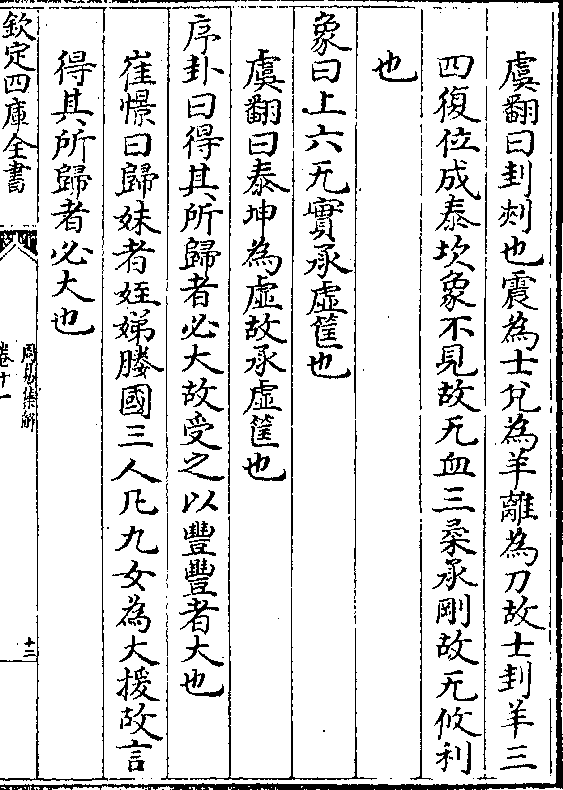 虞翻曰刲刾也震為士兌為羊離為刀故士刲羊三
四復位成泰坎象不見故无血三柔承剛故无攸利
也
象曰上六无實承虛筐也
虞翻曰泰坤為虛故承虛筐也
序卦曰得其所歸者必大故受之以豐豐者大也
崔憬曰歸妹者姪娣媵國三人凡九女為大援故言
得其所歸者必大也
欽定四庫全書
周易集解
卷十一
十二